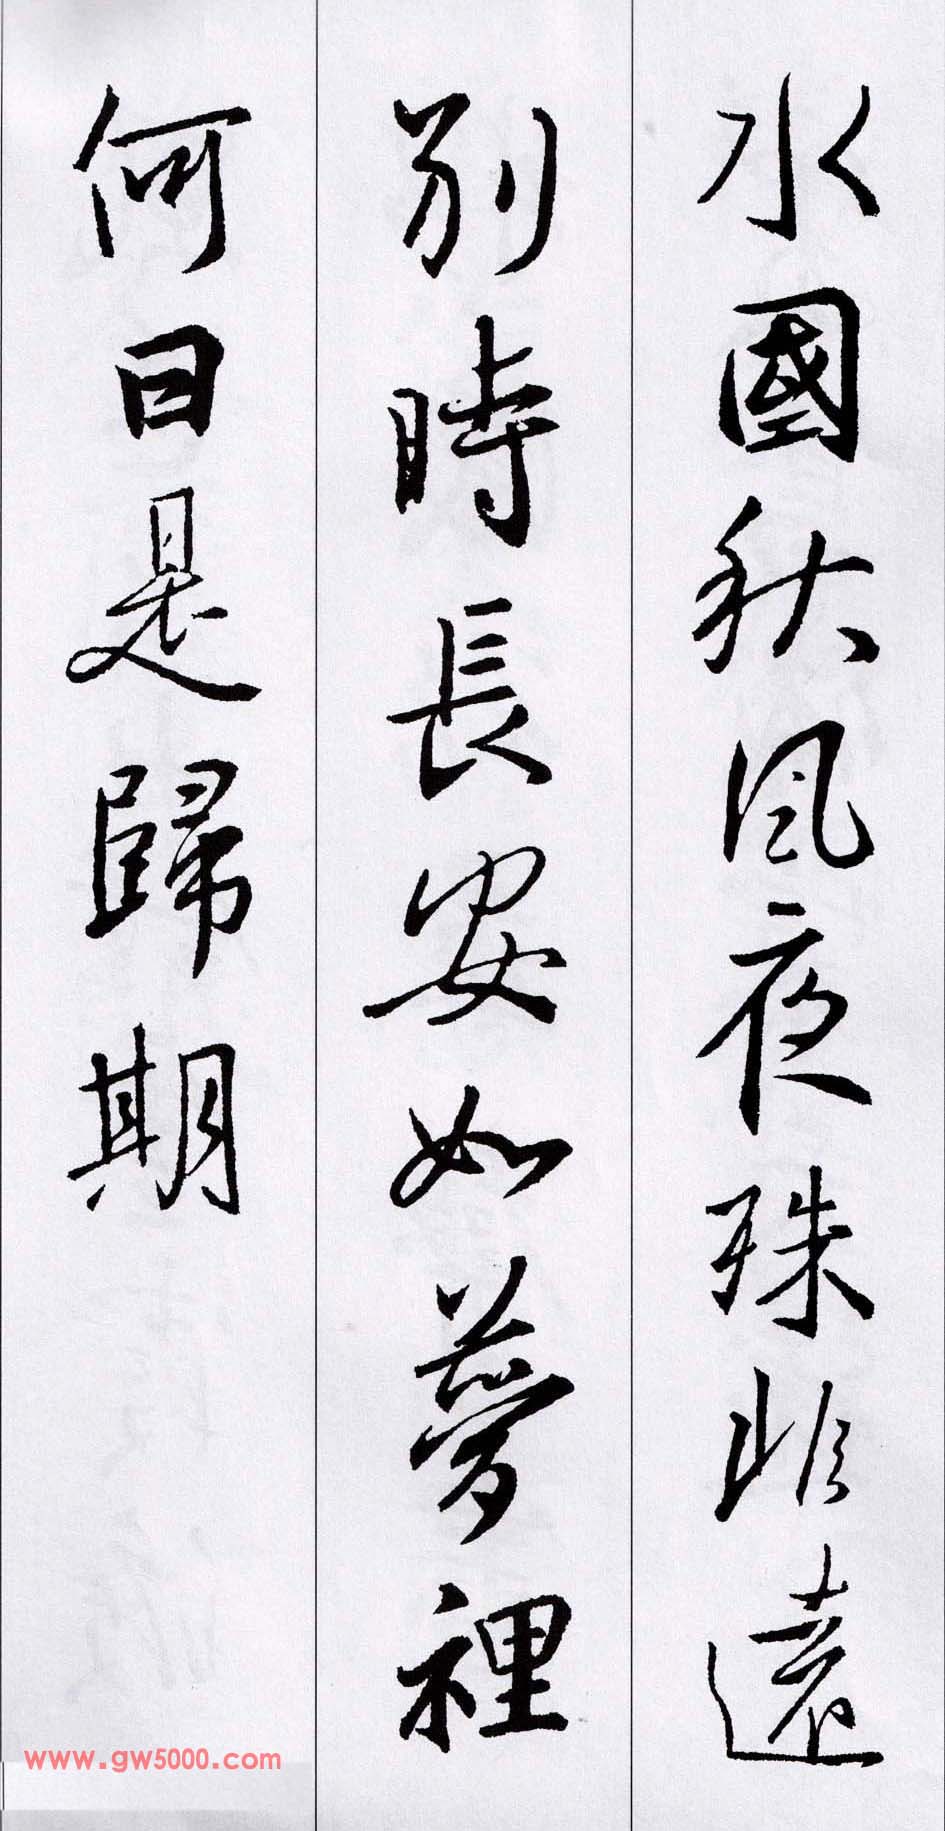 水國秋風夜殊非遠
別時長安如夢裡
何日是歸期
www.gw5000.com